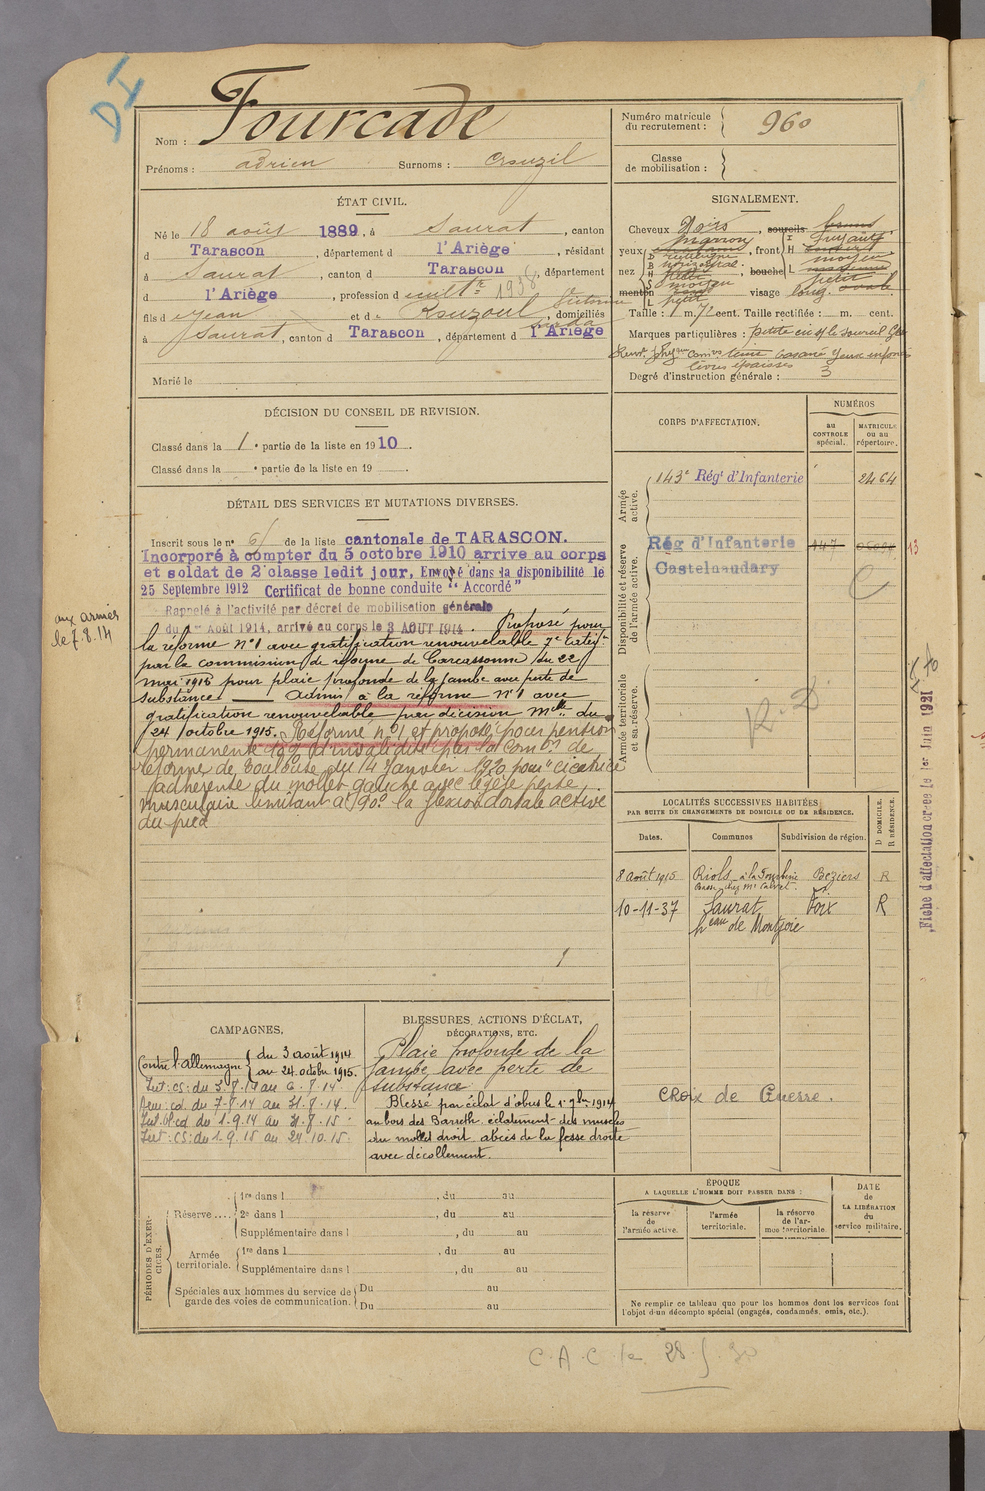 D I
Nom : Fourcade
Prénoms : adrien Surnoms : Crouzil
Numéro matricule du recrutement : 960
Classe de mobilisation :
ÉTAT CIVIL.
Né le 18 août 1889, à Saurat, canton
d Tarascon, département d l'Ariège, résidant
à Saurat, canton d Tarascon, département
d l'Ariège, profession d cultr 1938
fils d Jean et d Rouzoul Victorine
à Saurat, canton d Tarascon, département d l'Ariège domiciliés
Marié le
SIGNALEMENT.
Cheveux Noirs, sourcils bruns
yeux marron, front
nez, bouche
menton visage long. ovale
Taille : 1 m. 72 cent. Taille rectifiée : m. cent.
Marques particulières :
lèvres épaisses
Degré d'instruction générale : 3
DÉCISION DU CONSEIL DE REVISION.
Classé dans la 1 e partie de la liste en 1910.
Classé dans la e partie de la liste en 19 .
DÉTAIL DES SERVICES ET MUTATIONS DIVERSES.
Inscrit sous le n° 6 de la liste cantonale de TARASCON.
Incorporé à compter du 5 octobre 1910 arrive au corps
et soldat de 2e classe ledit jour, Envoyé dans la disponibilité le
25 Septembre 1912 Certificat de bonne conduite "Accordé"
Rappelé à l'activité par décret de mobilisation générale
du 1er Août 1914, arrivé au corps le 3 AOUT 1914. Proposé pour
aux armées
le 7.8.14
la réforme N°1 avec gratification renouvelable 7e catég.
par la commission de réforme de Carcassonne du 22
mai 1915 pour plaie profonde de la jambe avec perte de
substance — Admis à la réforme N°1 avec
gratification renouvelable par décision Mlle du
24 octobre 1915. Réformé n°1 et proposé pour pension
permanente 10% d'invalidité par la Comon de
réforme de Toulouse du 14 Janvier 1920 pour "cicatrice
adhérente du mollet gauche avec légère perte
musculaire limitant à 90° la flexion dorsale active
du pied
CORPS D'AFFECTATION.
NUMÉROS
au CONTROLE spécial.
MATRICULE ou au répertoire.
Armée active.
143e Régt d'Infanterie 2464
Disponibilité et réserve de l'armée active.
Rég d'Infanterie 147 13
Castelnaudary
Armée territoriale et sa réserve.
R. D.
Fiche d'affectation créée le 1er Juin 1921
LOCALITÉS SUCCESSIVES HABITÉES
PAR SUITE DE CHANGEMENTS DE DOMICILE OU DE RÉSIDENCE.
Dates. Communes Subdivision de région. D DOMICILE. R RÉSIDENCE.
8 août 1915 Riols Béziers R
10-11-37 Saurat Foix R
heau de Montjoie
CAMPAGNES.
Contre l'Allemagne du 3 août 1914
au 24 octobre 1915.
Int: CS: du 3.8.14 au 6.8.14.
du 7-8-14 au 31.8.14.
du 1.9.14 au 31.8.15
Int: CS: du 1.9.15 au 24.10.15.
BLESSURES, ACTIONS D'ÉCLAT, DÉCORATIONS, ETC.
Plaie profonde de la
jambe avec perte de
substance
Blessé par éclat d'obus le 1er 9bre 1914
au bois des Barreth, éclatement des muscles
du mollet droit, abcès de la fesse droite
avec décollement.
CROIX de Guerre.
PÉRIODES D'EXERCICES.
Réserve.... 1re dans l , du au
2e dans l , du au
Supplémentaire dans l , du au
Armée territoriale. 1re dans l , du au
Supplémentaire dans l , du au
Spéciales aux hommes du service de garde des voies de communication. Du au
Du au
ÉPOQUE
A LAQUELLE L'HOMME DOIT PASSER DANS :
la réserve de l'armée active.
l'armée territoriale.
la réserve de l'armée territoriale.
DATE de LA LIBÉRATION du service militaire.
Ne remplir ce tableau que pour les hommes dont les services font
l'objet d'un décompte spécial (engagés, condamnés, omis, etc.).
C.A.C. le 28